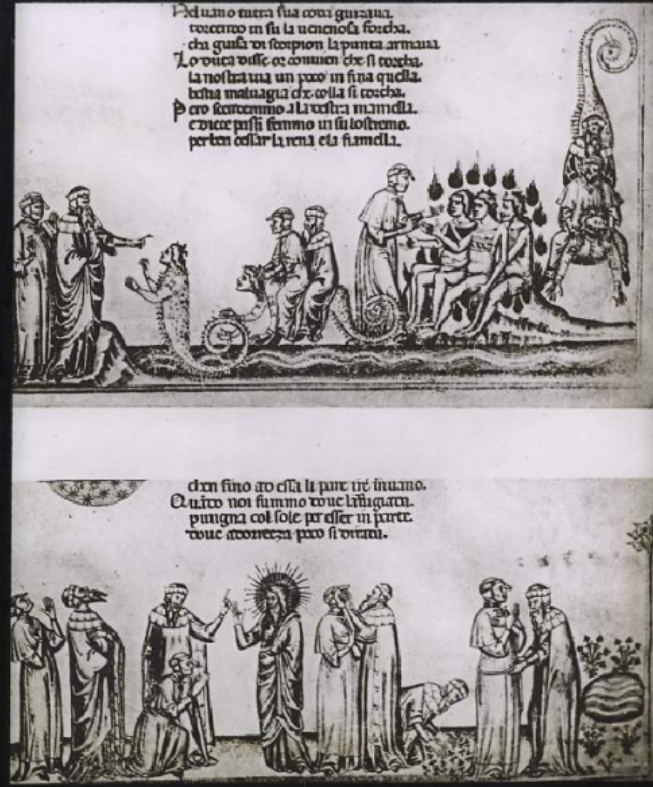 Nel uano tutta sua coda guizzaua.
torcendo in su la uenenosa forcha.
cha guisa di scorpion la punta armaua
Lo duca disse. or conuien che si torcha.
la nostra uia un poco in fina quella
bestia maluagia che colla si corcha.
Pero scendemmo a la destra mamella.
e diece passi femmo in su lostremo.
per ben cessar la rena e la fiamella.
chen fino ad essa li pare ire inuano.
Quãdo noi fummo doue la rugiada.
pungna col sole per esser in parte.
doue adorezza poco si dirada.